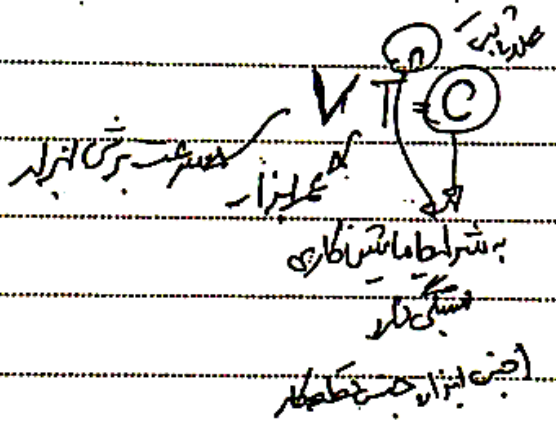 ضریب
V Tⁿ = C
سرعت برشی ابزار
عمر ابزار
به شرایط ماشین کاری
بستگی دارد
(جنس ابزار، جنس قطعه کار